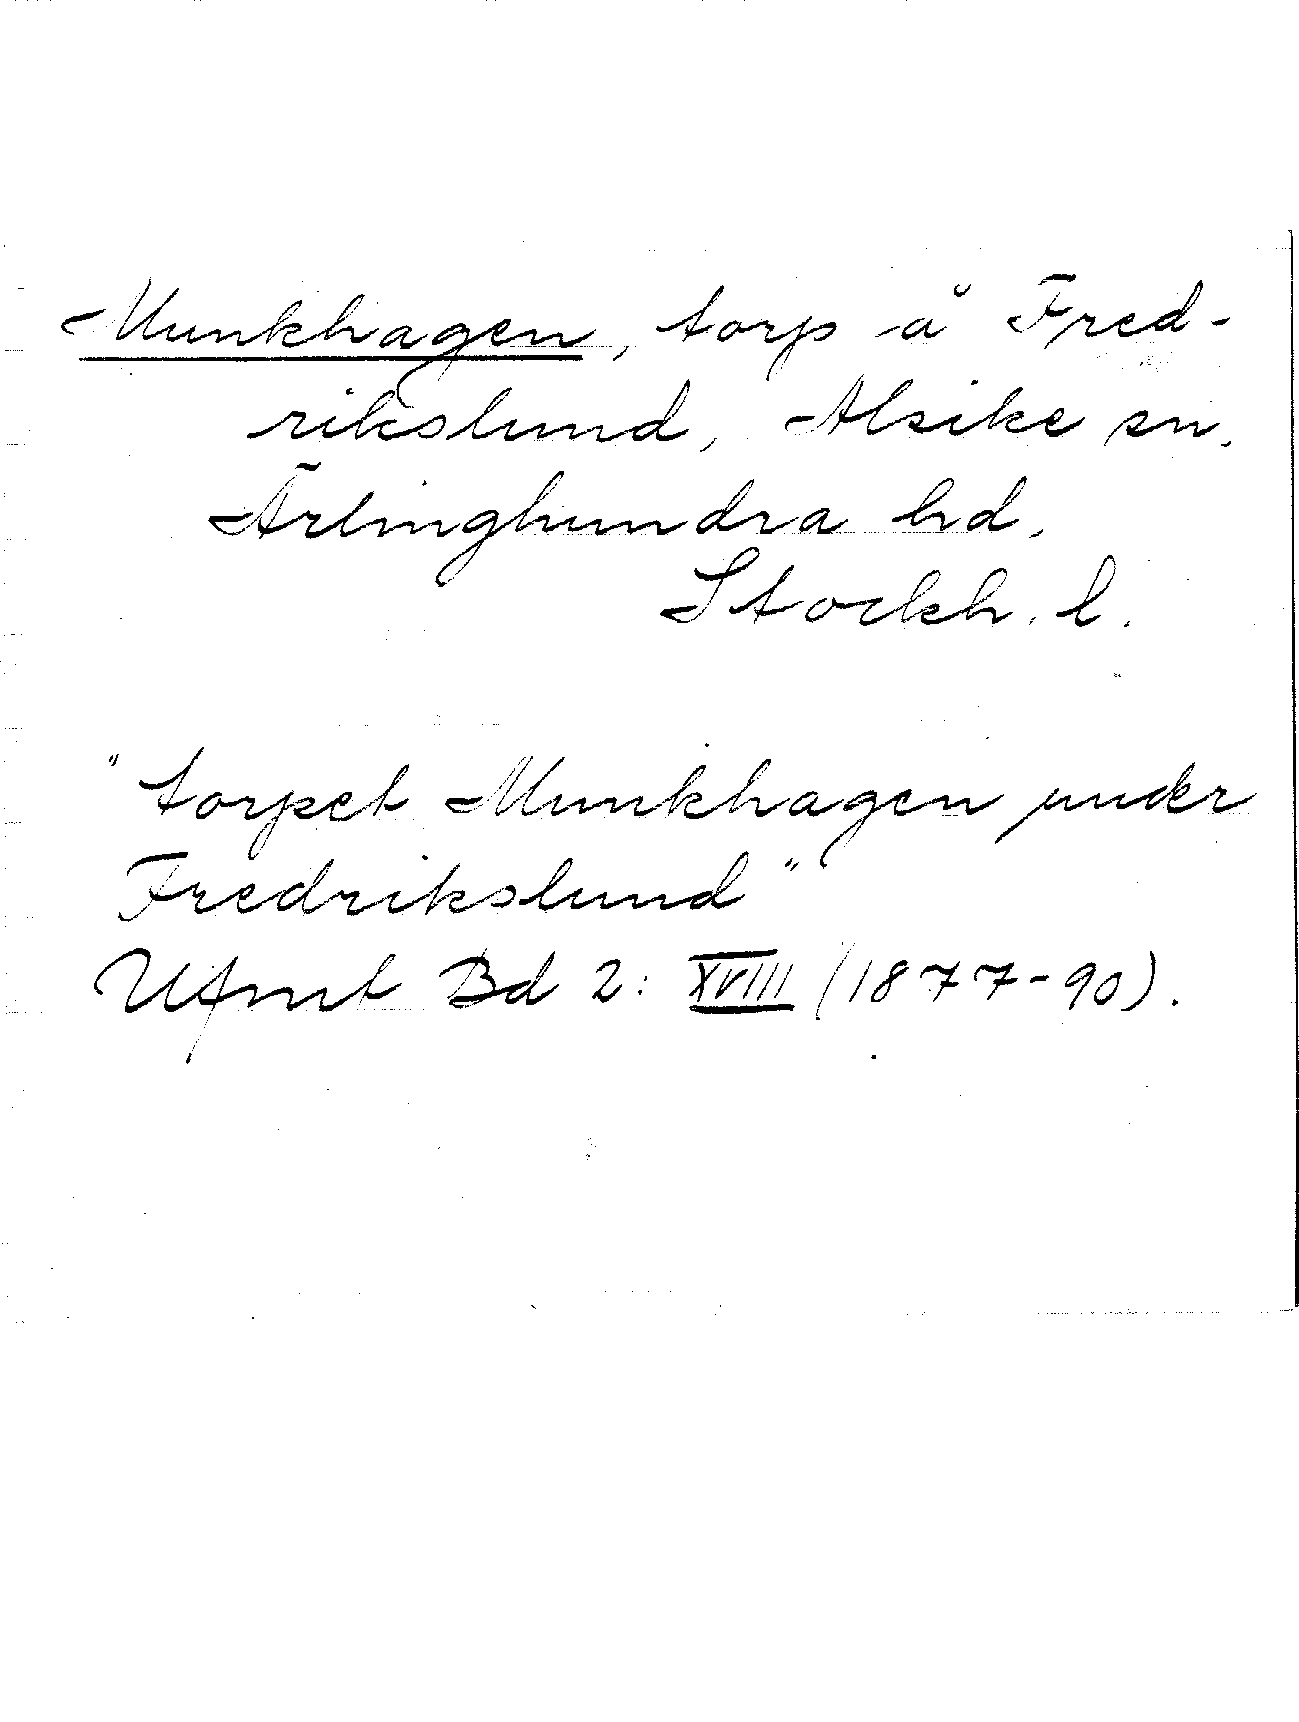 Munkhagen, torp å Fred-
rikslund, Alsike sn.
Ärlinghundra hd,
Stockh. l.
"torpet Munkhagen under
Fredrikslund"
Ufmt Bd 2: XVIII (1877-90).